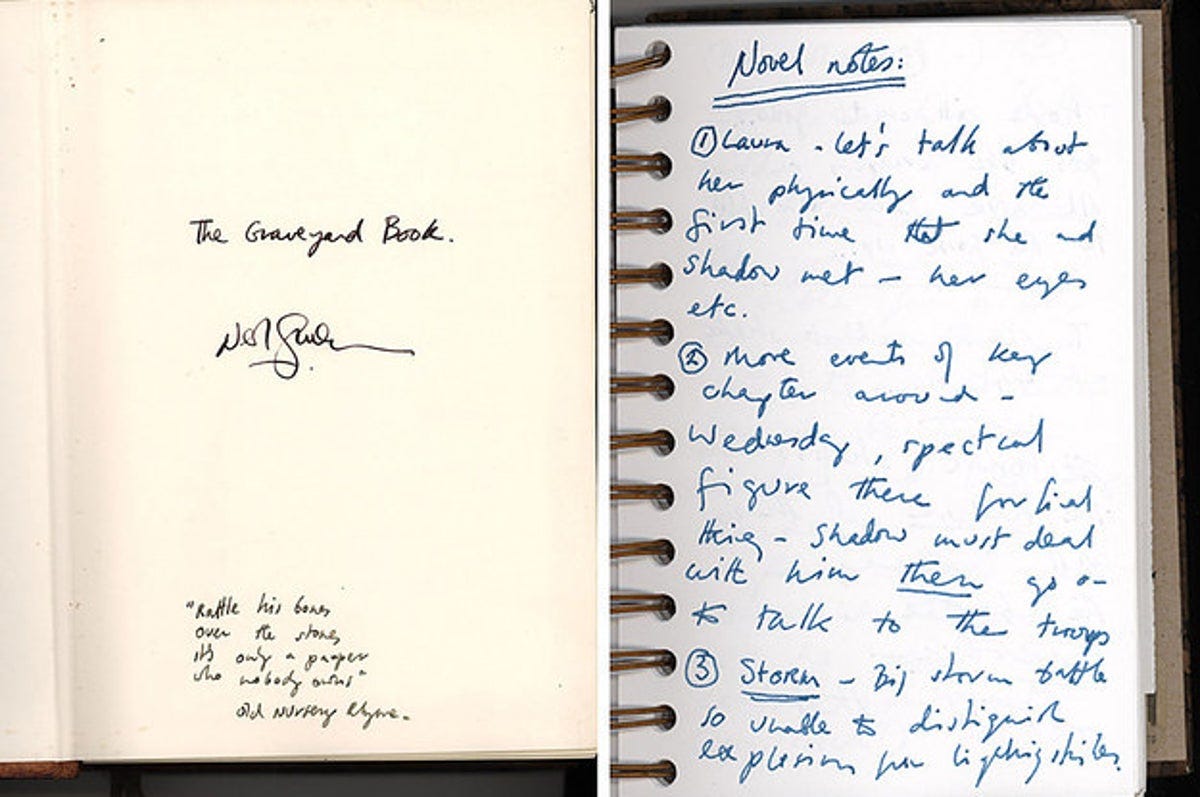 The Graveyard Book.
Neil Gaiman
"Rattle his bones
over the stones
it's only a pauper
who nobody owns"
old nursery rhyme.
Novel notes:
① Laura - let's talk about
her physically and the
first time that she and
Shadow met - her eyes
etc.
② More events of key
chapter around -
Wednesday, spectral
figure there for final
thing - Shadow must deal
with him then go on
to talk to the troops
③ Storm - Big storm battle
so unable to distinguish
explosions from lightning strikes.